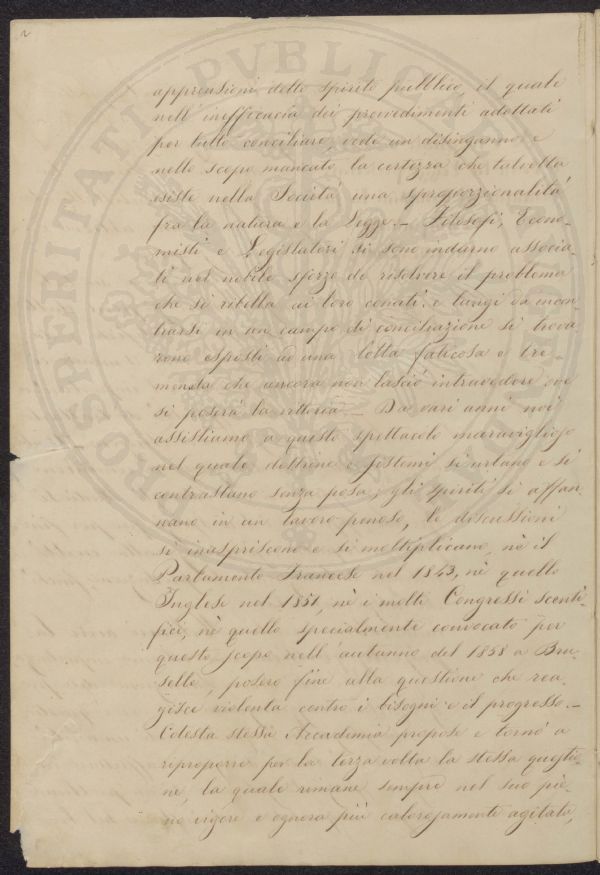 2
PROSPERITATI PVBLICAE
apprensioni dello spirito pubblico, il quale
nell'inefficacia dei provvedimenti adottati
per tutto conciliare, vede un disinganno e
nello scopo mancato la certezza che talvolta
esiste nella Società una sproporzionalità
fra la natura e la Legge.- Filosofi, Econo-
misti e Legislatori si sono indarno associa-
ti nel nobile sforzo di risolvere il problema
che si ribella ai loro conati: e lungi da incon-
trarsi in un campo di conciliazione si trova-
rono esposti ad una lotta faticosa e tre-
menda che ancora non lasciò intravedere ove
si poserà la vittoria.- Da vari anni noi
assistiamo a questo spettacolo maraviglioso
nel quale dottrine e sistemi si urtano e si
contrastano senza posa; gli spiriti si affan-
nano in un lavoro penoso, le discussioni
si inaspriscono e si moltiplicano, nè il
Parlamento Francese nel 1843, nè quello
Inglese nel 1851, nè i molti Congressi scenti-
fici, nè quello specialmente convocato per
questo scopo nell'autunno del 1858 a Bru-
selle, posero fine alla questione che rea-
gisce violenta contro i bisogni e il progresso.-
Cotesta stessa Accademia propose e tornò a
riproporre per la terza volta la stessa questio-
ne, la quale rimane sempre nel suo pie-
no vigore e ognora più calorosamente agitata,